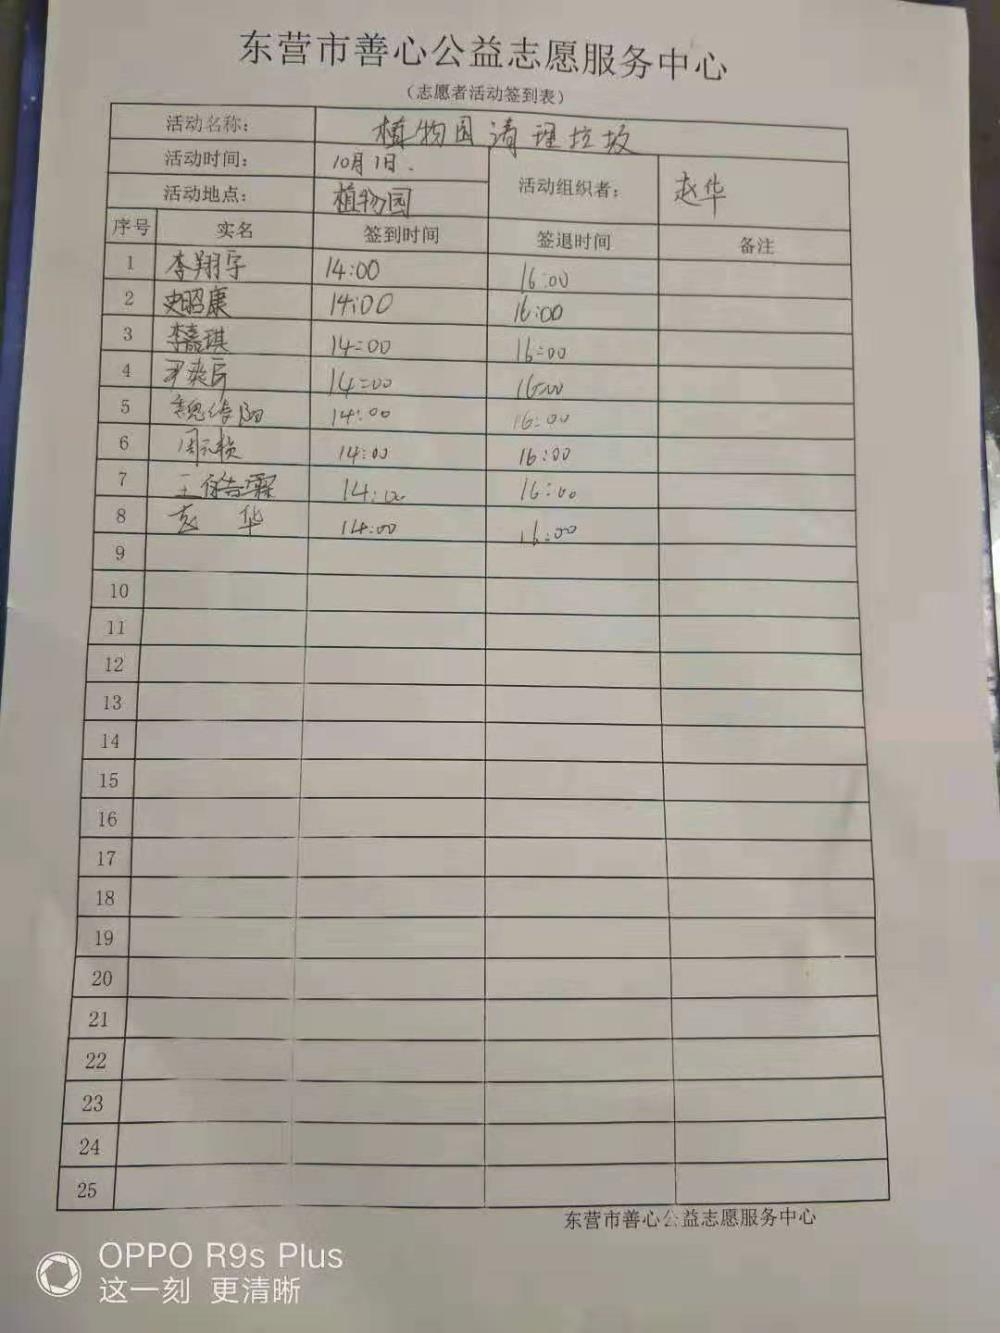 东营市善心公益志愿服务中心
（志愿者活动签到表）
活动名称： 植物园清理垃圾
活动时间： 10月1日. 活动组织者： 赵华
活动地点： 植物园
序号 实名 签到时间 签退时间 备注
1 李翔宇 14:00 16:00
2 史昭康 14:00 16:00
3 李嘉琪 14:00 16:00
4 14:00 16:00
5 14:00 16:00
6 14:00 16:00
7 14:00 16:00
8 赵华 14:00 16:00
9
10
11
12
13
14
15
16
17
18
19
20
21
22
23
24
25
东营市善心公益志愿服务中心
OPPO R9s Plus
这一刻 更清晰